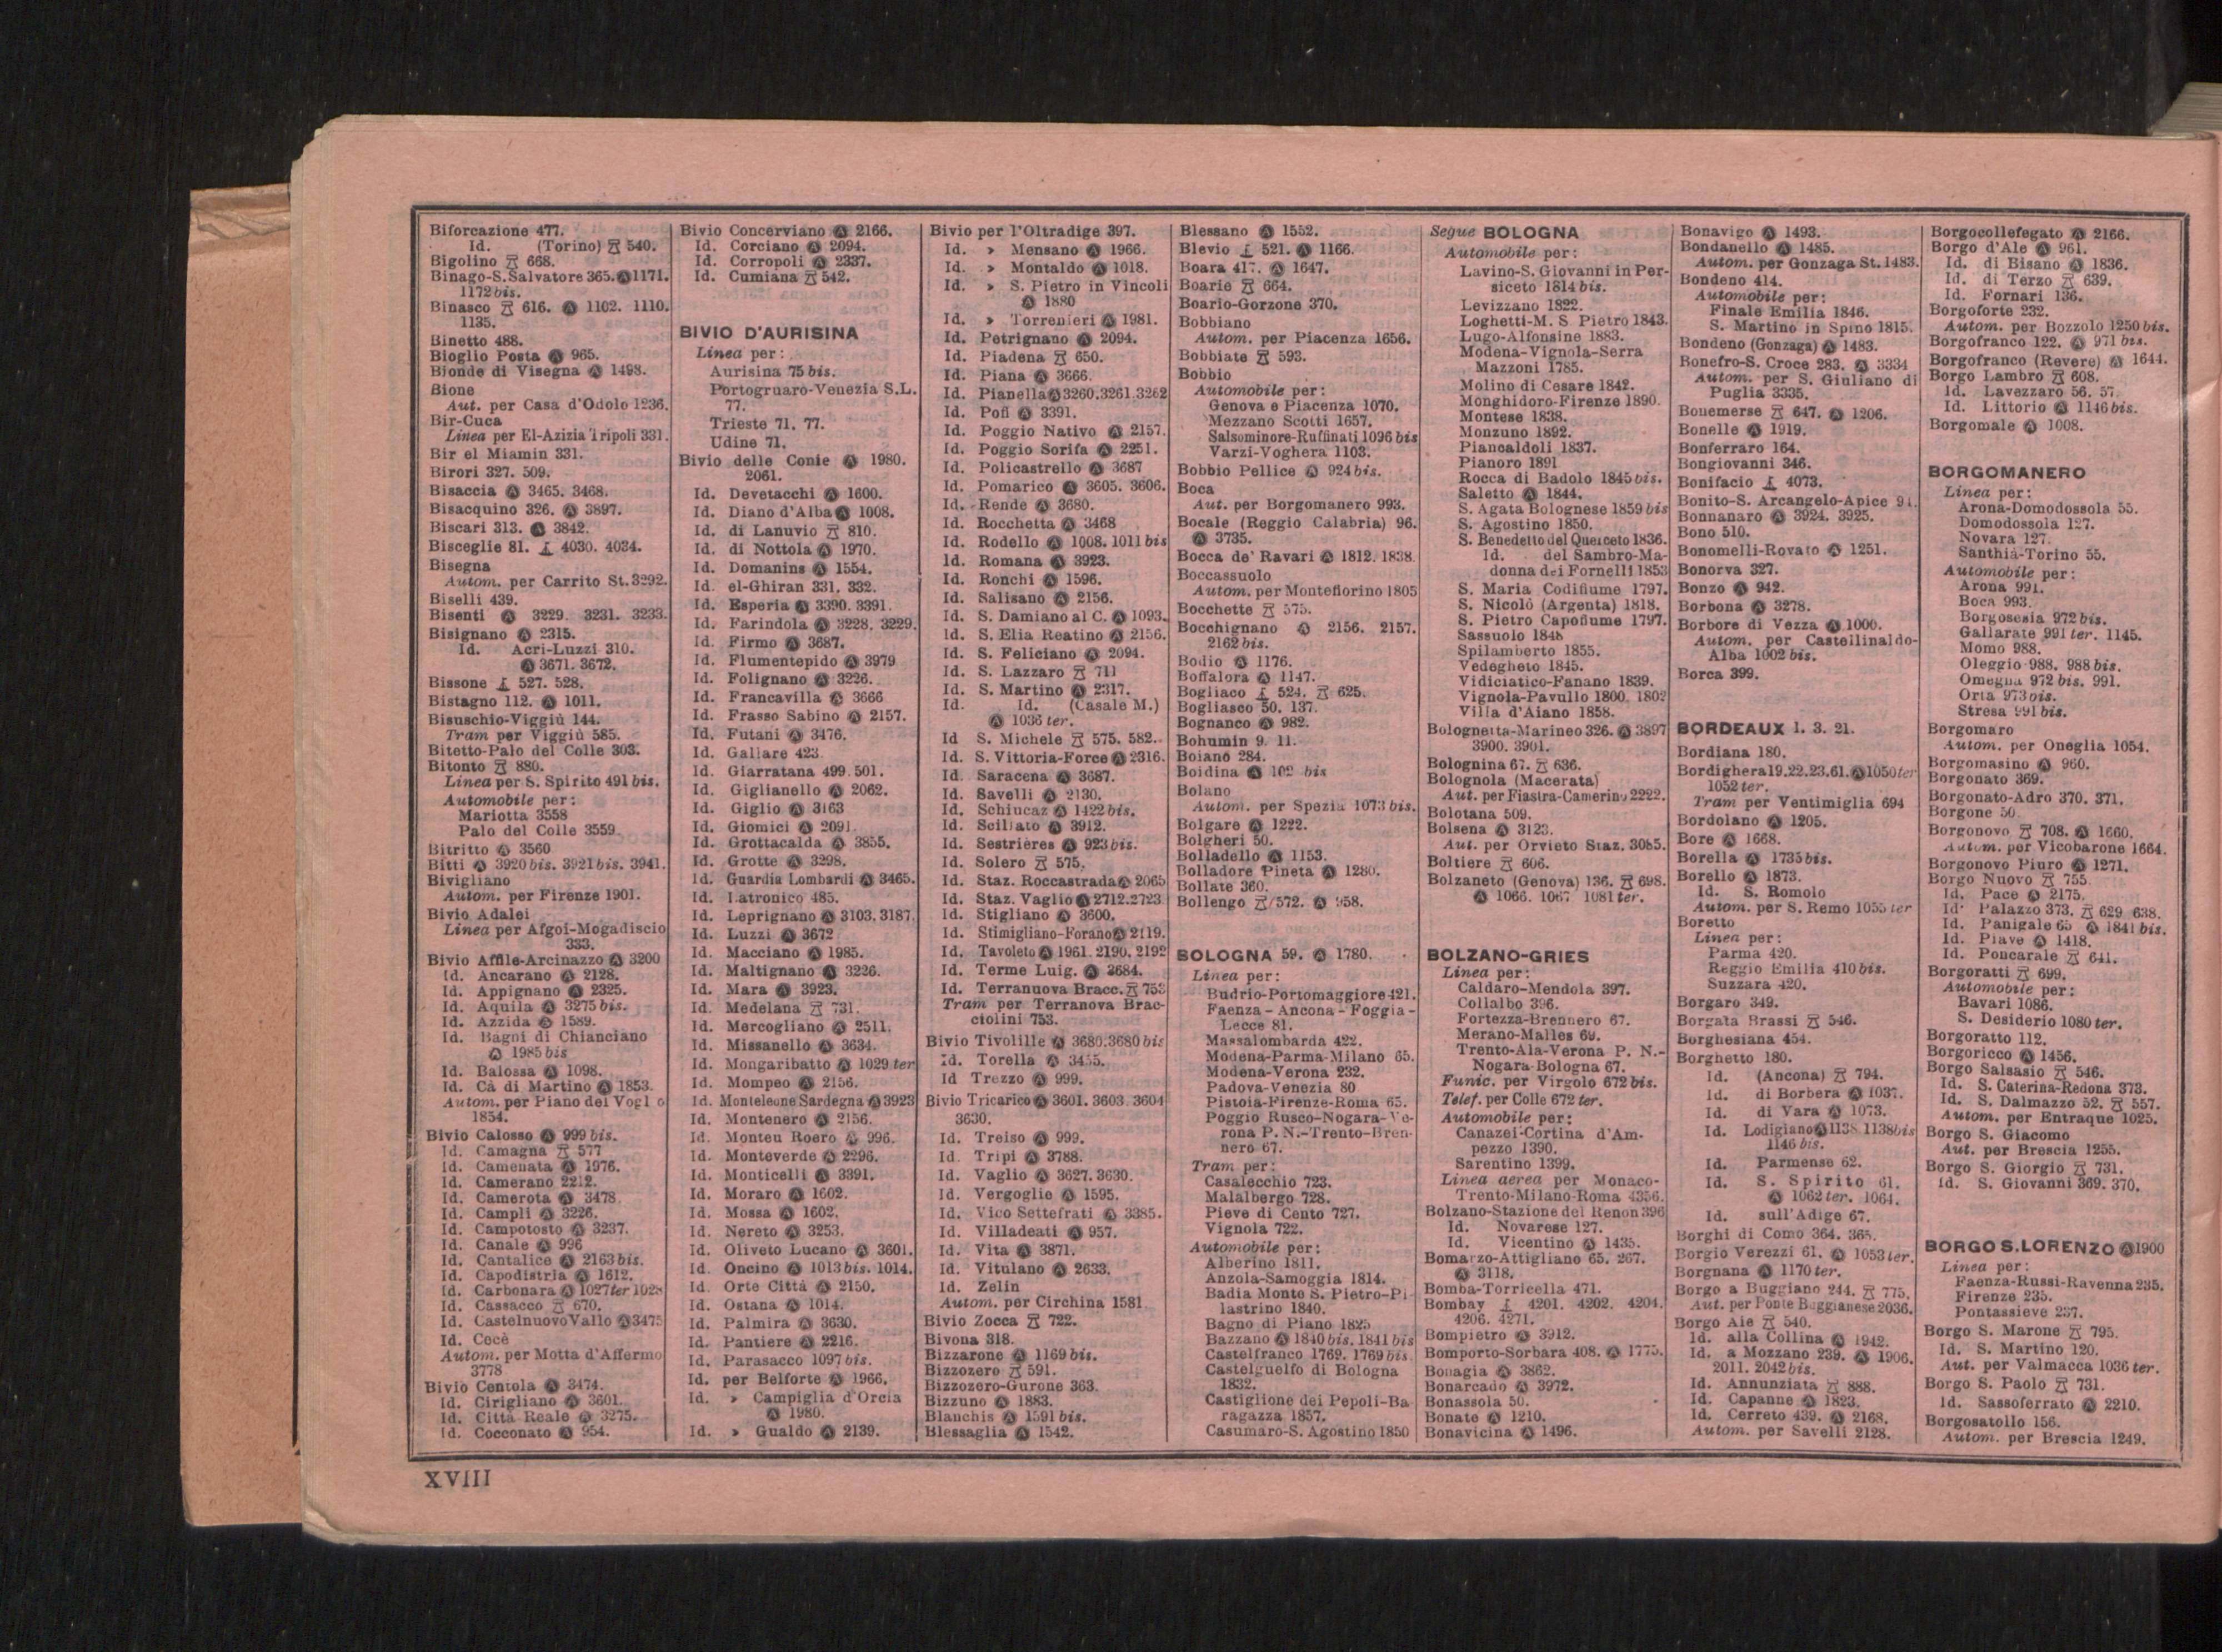 Biforcazione 477.
Id. (Torino) 540.
Bigolino 668.
Binago-S.Salvatore 365. 1171.
1172 bis.
Binasco 616. 1102. 1110.
1135.
Binetto 488.
Bioglio Posta 965.
Bionde di Visegna 1498.
Bione
Aut. per Casa d'Odolo 1236.
Bir-Cuca
Linea per El-Azizia Tripoli 331.
Bir el Miamin 331.
Birori 327. 509.
Bisaccia 3465. 3468.
Bisacquino 326. 3897.
Biscari 313. 3842.
Bisceglie 81. 4030. 4034.
Bisegna
Autom. per Carrito St. 3292.
Biselli 439.
Bisenti 3229. 3231. 3233.
Bisignano 2315.
Id. Acri-Luzzi 310.
3671. 3672.
Bissone 527. 528.
Bistagno 112. 1011.
Bisuschio-Viggiù 144.
Tram per Viggiù 585.
Bitetto-Palo del Colle 303.
Bitonto 880.
Linea per S. Spirito 491 bis.
Automobile per:
Mariotta 3558
Palo del Colle 3559.
Bitritto 3560
Bitti 3920 bis. 3921 bis. 3941.
Bivigliano
Autom. per Firenze 1901.
Bivio Adalei
Linea per Afgoi-Mogadiscio
333.
Bivio Affile-Arcinazzo 3200
Id. Ancarano 2128.
Id. Appignano 2325.
Id. Aquila 3275 bis.
Id. Azzida 1589.
Id. Bagni di Chianciano
1985 bis
Id. Balossa 1098.
Id. Cà di Martino 1853.
Autom. per Piano del Voglo
1854.
Bivio Calosso 999 bis.
Id. Camagna 577
Id. Camenata 1976.
Id. Camerano 2212.
Id. Camerota 3478
Id. Campli 3226.
Id. Campotosto 3237.
Id. Canale 996
Id. Cantalice 2163 bis.
Id. Capodistria 1612.
Id. Carbonara 1027 ter 1028
Id. Cassacco 670.
Id. Castelnuovo Vallo 3475
Id. Cecè
Autom. per Motta d'Affermo
3778
Bivio Centola 3474.
Id. Cirigliano 3601.
Id. Città Reale 3275.
Id. Cocconato 954.
Bivio Concerviano 2166.
Id. Corciano 2094.
Id. Corropoli 2337.
Id. Cumiana 542.
BIVIO D'AURISINA
Linea per:
Aurisina 75 bis.
Portogruaro-Venezia S.L.
77.
Trieste 71. 77.
Udine 71.
Bivio delle Conie 1980.
2061.
Id. Devetacchi 1600.
Id. Diano d'Alba 1008.
Id. di Lanuvio 810.
Id. di Nottola 1970.
Id. Domanins 1554.
Id. el-Ghiran 331. 332.
Id. Esperia 3390. 3391.
Id. Farindola 3228. 3229.
Id. Firmo 3687.
Id. Flumentepido 3979
Id. Folignano 3226.
Id. Francavilla 3666
Id. Frasso Sabino 2157.
Id. Futani 3476.
Id. Gallare 423
Id. Giarratana 499. 501.
Id. Giglianello 2062.
Id. Giglio 3163
Id. Giomici 2091.
Id. Grottacalda 3855.
Id. Grotte 3298.
Id. Guardia Lombardi 3465.
Id. Latronico 485.
Id. Leprignano 3103. 3187.
Id. Luzzi 3672
Id. Macciano 1985.
Id. Maltignano 3226.
Id. Mara 3923.
Id. Medelana 731.
Id. Mercogliano 2511.
Id. Missanello 3634.
Id. Mongaribatto 1029 ter
Id. Mompeo 2156.
Id. Monteleone Sardegna 3923
Id. Montenero 2156.
Id. Monteu Roero 996.
Id. Monteverde 2296.
Id. Monticelli 3391.
Id. Moraro 1602.
Id. Mossa 1602.
Id. Nereto 3253.
Id. Oliveto Lucano 3601.
Id. Oncino 1013 bis. 1014.
Id. Orte Città 2150.
Id. Ostana 1014.
Id. Palmira 3630.
Id. Pantiere 2216.
Id. Parasacco 1097 bis.
Id. per Belforte 1966.
Id. » Campiglia d'Orcia
1980.
Id. » Gualdo 2139.
Bivio per l'Oltradige 397.
Id. » Mensano 1966.
Id. » Montaldo 1018.
Id. » S. Pietro in Vincoli
1880
Id. » Torrenieri 1981.
Id. Petrignano 2094.
Id. Piadena 650.
Id. Piana 3666.
Id. Pianella 3260.3261.3262
Id. Pofi 3391.
Id. Poggio Nativo 2157.
Id. Poggio Sorifa 2251.
Id. Policastrello 3687
Id. Pomarico 3605. 3606.
Id. Rende 3680.
Id. Rocchetta 3468
Id. Rodello 1008. 1011 bis
Id. Romana 3923.
Id. Ronchi 1596.
Id. Salisano 2156.
Id. S. Damiano al C. 1093.
Id. S. Elia Reatino 2156.
Id. S. Feliciano 2094.
Id. S. Lazzaro 711
Id. S. Martino 2317.
Id. Id. (Casale M.)
1036 ter.
Id S. Michele 575. 582.
Id. S. Vittoria-Force 2316.
Id. Saracena 3687.
Id. Savelli 2130.
Id. Schiucaz 1422 bis.
Id. Scillato 3912.
Id. Sestrières 923 bis.
Id. Solero 575.
Id. Staz. Roccastrada 2065
Id. Staz. Vaglio 2712.2723
Id. Stigliano 3600.
Id. Stimigliano-Forano 2119.
Id. Tavoleto 1961. 2190. 2192
Id. Terme Luig. 3684.
Id. Terranuova Bracc. 753
Tram per Terranova Brac-
ciolini 753.
Bivio Tivolille 3680.3680 bis
Id. Torella 3455.
Id Trezzo 999.
Bivio Tricarico 3601. 3603. 3604
3630.
Id. Treiso 999.
Id. Tripi 3788.
Id. Vaglio 3627. 3630.
Id. Vergoglie 1595.
Id. Vico Settefrati 3385.
Id. Villadeati 957.
Id. Vita 3871.
Id. Vitulano 2633.
Id. Zelin
Autom. per Circhina 1581.
Bivio Zocca 722.
Bivona 318.
Bizzarone 1169 bis.
Bizzozero 591.
Bizzozero-Gurone 363.
Bizzuno 1883.
Blanchis 1591 bis.
Blessaglia 1542.
Blessano 1552.
Blevio 521. 1166.
Boara 417. 1647.
Boarie 664.
Boario-Gorzone 370.
Bobbiano
Autom. per Piacenza 1656.
Bobbiate 593.
Bobbio
Automobile per:
Genova e Piacenza 1070.
Mezzano Scotti 1657.
Salsominore-Ruffinati 1096 bis
Varzi-Voghera 1103.
Bobbio Pellice 924 bis.
Boca
Aut. per Borgomanero 993.
Bocale (Reggio Calabria) 96.
3735.
Bocca de' Ravari 1812. 1838.
Boccassuolo
Autom. per Montefiorino 1805
Bocchette 575.
Bocchignano 2156. 2157.
2162 bis.
Bodio 1176.
Boffalora 1147.
Bogliaco 524. 625.
Bogliasco 50. 137.
Bognanco 982.
Bohumin 9. 11.
Boiano 284.
Boidina bis
Bolano
Autom. per Spezia 1073 bis.
Bolgare 1222.
Bolgheri 50.
Bolladello 1153.
Bolladore Pineta 1280.
Bollate 360.
Bollengo 572. 958.
BOLOGNA 59. 1780.
Linea per:
Budrio-Portomaggiore 421.
Faenza - Ancona - Foggia -
Lecce 81.
Massalombarda 422.
Modena-Parma-Milano 65.
Modena-Verona 232.
Padova-Venezia 80
Pistoia-Firenze-Roma 65.
Poggio Rusco-Nogara-Ve-
rona P. N.-Trento-Bren-
nero 67.
Tram per:
Casalecchio 723.
Malalbergo 728.
Pieve di Cento 727.
Vignola 722.
Automobile per:
Alberino 1811.
Anzola-Samoggia 1814.
Badia Monte S. Pietro-Pi-
lastrino 1840.
Bagno di Piano 1825
Bazzano 1840 bis. 1841 bis
Castelfranco 1769. 1769 bis
Castelguelfo di Bologna
1832.
Castiglione dei Pepoli-Ba
ragazza 1857.
Casumaro-S. Agostino 1850
Segue BOLOGNA
Automobile per:
Lavino-S. Giovanni in Per-
siceto 1814 bis.
Levizzano 1822.
Loghetti-M. S. Pietro 1843.
Lugo-Alfonsine 1883.
Modena-Vignola-Serra
Mazzoni 1785.
Molino di Cesare 1842.
Monghidoro-Firenze 1890.
Montese 1838.
Monzuno 1892.
Piancaldoli 1837.
Pianoro 1891
Rocca di Badolo 1845 bis.
Saletto 1844.
S. Agata Bolognese 1859 bis
S. Agostino 1850.
S. Benedetto del Querceto 1836.
Id. del Sambro-Ma-
donna dei Fornelli 1853
S. Maria Codifiume 1797.
S. Nicolò (Argenta) 1818.
S. Pietro Capofiume 1797.
Sassuolo 1848
Spilamberto 1855.
Vedegheto 1845.
Vidiciatico-Fanano 1839.
Vignola-Pavullo 1800. 1802
Villa d'Aiano 1858.
Bolognetta-Marineo 326. 3897
3900. 3901.
Bolognina 67. 636.
Bolognola (Macerata)
Aut. per Fiastra-Camerino 2222.
Bolotana 509.
Bolsena 3123.
Aut. per Orvieto Staz. 3085.
Boltiere 606.
Bolzaneto (Genova) 136. 698.
1066. 1067 1081 ter.
BOLZANO-GRIES
Linea per:
Caldaro-Mendola 397.
Collalbo 396.
Fortezza-Brennero 67.
Merano-Malles 69.
Trento-Ala-Verona P. N.-
Nogara-Bologna 67.
Funic. per Virgolo 672 bis.
Telef. per Colle 672 ter.
Automobile per:
Canazei-Cortina d'Am-
pezzo 1390.
Sarentino 1399.
Linea aerea per Monaco-
Trento-Milano-Roma 4356.
Bolzano-Stazione del Renon 396
Id. Novarese 127.
Id. Vicentino 1435.
Bomarzo-Attigliano 65. 267.
3118.
Bomba-Torricella 471.
Bombay 4201. 4202. 4204.
4206. 4271.
Bompietro 3912.
Bomporto-Sorbara 408. 1775.
Bonagia 3862.
Bonarcado 3972.
Bonassola 50.
Bonate 1210.
Bonavicina 1496.
Bonavigo 1493.
Bondanello 1485.
Autom. per Gonzaga St. 1483.
Bondeno 414.
Automobile per:
Finale Emilia 1846.
S. Martino in Spino 1815.
Bondeno (Gonzaga) 1483.
Bonefro-S. Croce 283. 3334
Autom. per S. Giuliano di
Puglia 3335.
Bonemerse 647. 1206.
Bonelle 1919.
Bonferraro 164.
Bongiovanni 346.
Bonifacio 4073.
Bonito-S. Arcangelo-Apice 91.
Bonnanaro 3924. 3925.
Bono 510.
Bonomelli-Rovato 1251.
Bonorva 327.
Bonzo 942.
Borbona 3278.
Borbore di Vezza 1000.
Autom. per Castellinaldo-
Alba 1002 bis.
Borca 399.
BORDEAUX 1. 3. 21.
Bordiana 180.
Bordighera 19.22.23.61. 1050 ter
1052 ter.
Tram per Ventimiglia 694
Bordolano 1205.
Bore 1668.
Borella 1735 bis.
Borello 1873.
Id. S. Romolo
Autom. per S. Remo 1055 ter
Boretto
Linea per:
Parma 420.
Reggio Emilia 410 bis.
Suzzara 420.
Borgaro 349.
Borgata Brassi 546.
Borghesiana 454.
Borghetto 180.
Id. (Ancona) 794.
Id. di Borbera 1037.
Id. di Vara 1073.
Id. Lodigiano 1138 1138 bis
1146 bis.
Id. Parmense 62.
Id. S. Spirito 61.
1062 ter. 1064.
Id. sull'Adige 67.
Borghi di Como 364. 365.
Borgio Verezzi 61. 1053 ter.
Borgnana 1170 ter.
Borgo a Buggiano 244. 775.
Aut. per Ponte Buggianese 2036.
Borgo Aie 540.
Id. alla Collina 1942.
Id. a Mozzano 239. 1906.
2011. 2042 bis.
Id. Annunziata 888.
Id. Capanne 1823.
Id. Cerreto 439. 2168.
Autom. per Savelli 2128.
Borgocollefegato 2166.
Borgo d'Ale 961.
Id. di Bisano 1836.
Id. di Terzo 639.
Id. Fornari 136.
Borgoforte 232.
Autom. per Bozzolo 1250 bis.
Borgofranco 122. 971 bis.
Borgofranco (Revere) 1644.
Borgo Lambro 608.
Id. Lavezzaro 56. 57.
Id. Littorio 1146 bis.
Borgomale 1008.
BORGOMANERO
Linea per:
Arona-Domodossola 55.
Domodossola 127.
Novara 127.
Santhià-Torino 55.
Automobile per:
Arona 991.
Boca 993.
Borgosesia 972 bis.
Gallarate 991 ter. 1145.
Momo 988.
Oleggio 988. 988 bis.
Omegna 972 bis. 991.
Orta 973 bis.
Stresa 991 bis.
Borgomaro
Autom. per Oneglia 1054.
Borgomasino 960.
Borgonato 369.
Borgonato-Adro 370. 371.
Borgone 50.
Borgonovo 708. 1660.
Autom. per Vicobarone 1664.
Borgonovo Piuro 1271.
Borgo Nuovo 755
Id. Pace 2175.
Id. Palazzo 373. 629 638.
Id. Panigale 65 1841 bis.
Id. Piave 1418.
Id. Poncarale 641.
Borgoratti 699.
Automobile per:
Bavari 1086.
S. Desiderio 1080 ter.
Borgoratto 112.
Borgoricco 1456.
Borgo Salsasio 546.
Id. S. Caterina-Redona 373.
Id. S. Dalmazzo 52. 557.
Autom. per Entraque 1025.
Borgo S. Giacomo
Aut. per Brescia 1255.
Borgo S. Giorgio 731.
Id. S. Giovanni 369. 370.
BORGO S.LORENZO 1900
Linea per:
Faenza-Russi-Ravenna 235.
Firenze 235.
Pontassieve 237.
Borgo S. Marone 795.
Id. S. Martino 120.
Aut. per Valmacca 1036 ter.
Borgo S. Paolo 731.
Id. Sassoferrato 2210.
Borgosatollo 156.
Autom. per Brescia 1249.
XVIII